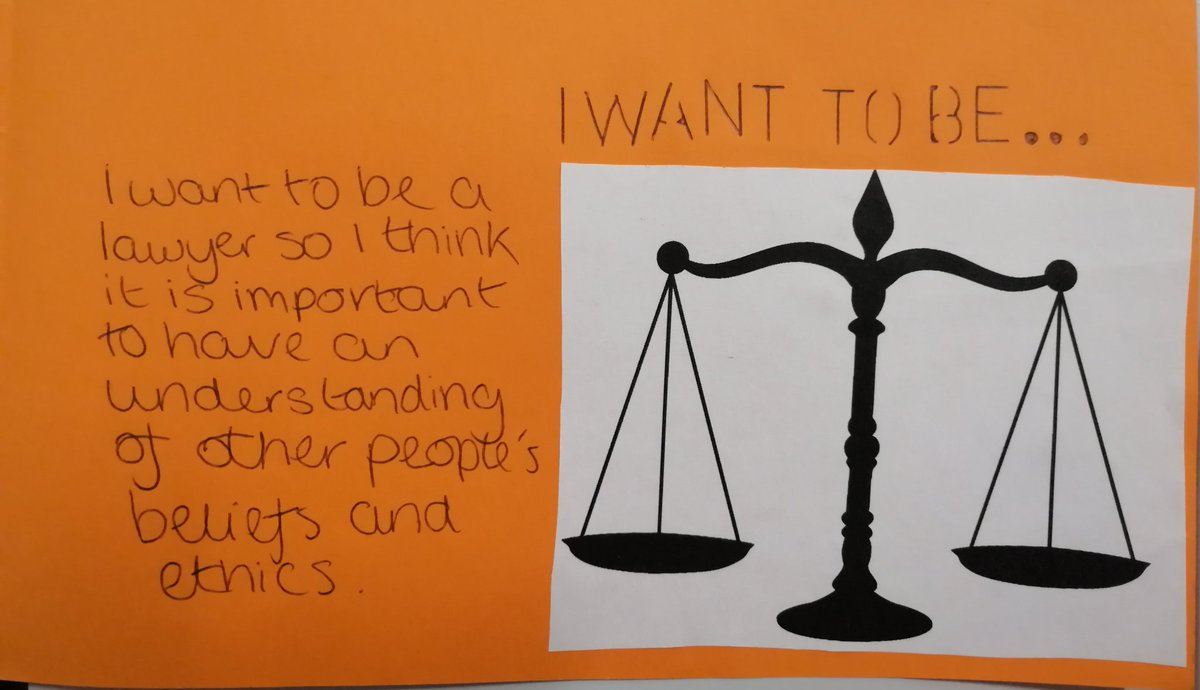 I WANT TO BE...
I want to be a
lawyer so I think
it is important
to have an
understanding
of other people's
beliefs and
ethics.